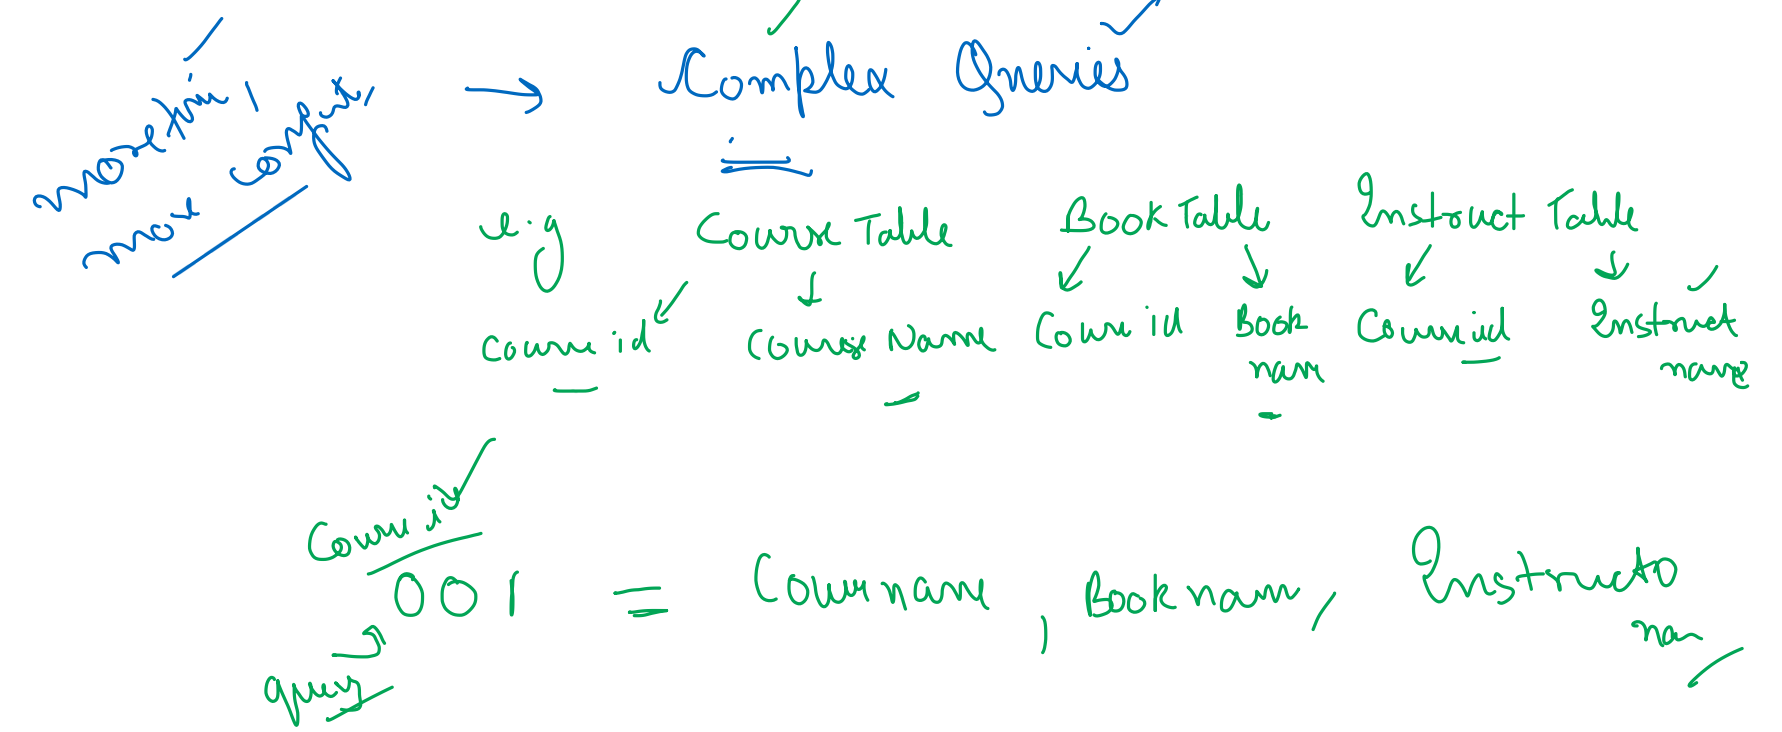 more time,
more comput,
→ Complex Queries
e.g Course Table Book Table Instruct Table
course id Course Name Course id Book name Course id Instruct name
Course id
001 = Course name, Book name, Instructo na
query